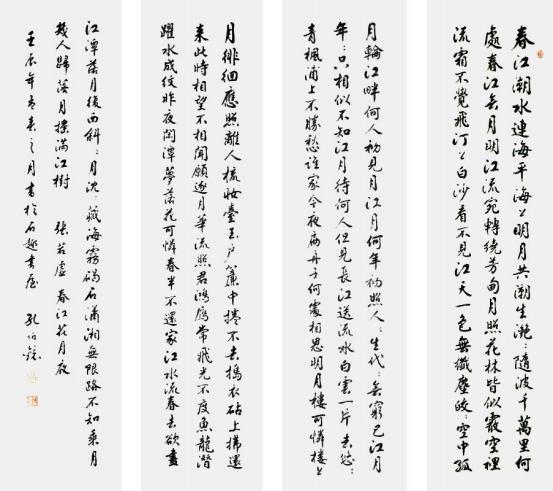 春江潮水連海平海上明月共潮生灧〻隨波千萬里何
處春江無月明江流宛轉繞芳甸月照花林皆似霰空裡
流霜不覺飛汀上白沙看不見江天一色無纖塵皎〻空中孤
月輪江畔何人初見月江月何年初照人〻生代〻無窮已江月
年〻只相似不知江月待何人但見長江送流水白雲一片去悠〻
青楓浦上不勝愁誰家今夜扁舟子何處相思明月樓可憐樓上
月徘徊應照離人梳妝臺玉戶簾中捲不去搗衣砧上拂還
來此時相望不相聞願逐月華流照君鴻鴈常飛光不度魚龍潛
躍水成紋昨夜閑潭夢落花可憐春半不還家江水流春去欲盡
江潭落月復西斜〻月沈〻藏海霧碣石瀟湘無限路不知乘月
幾人歸落月搖滿江樹 張若虛 春江花月夜
壬辰年春之月書於石趣書屋 孔伯